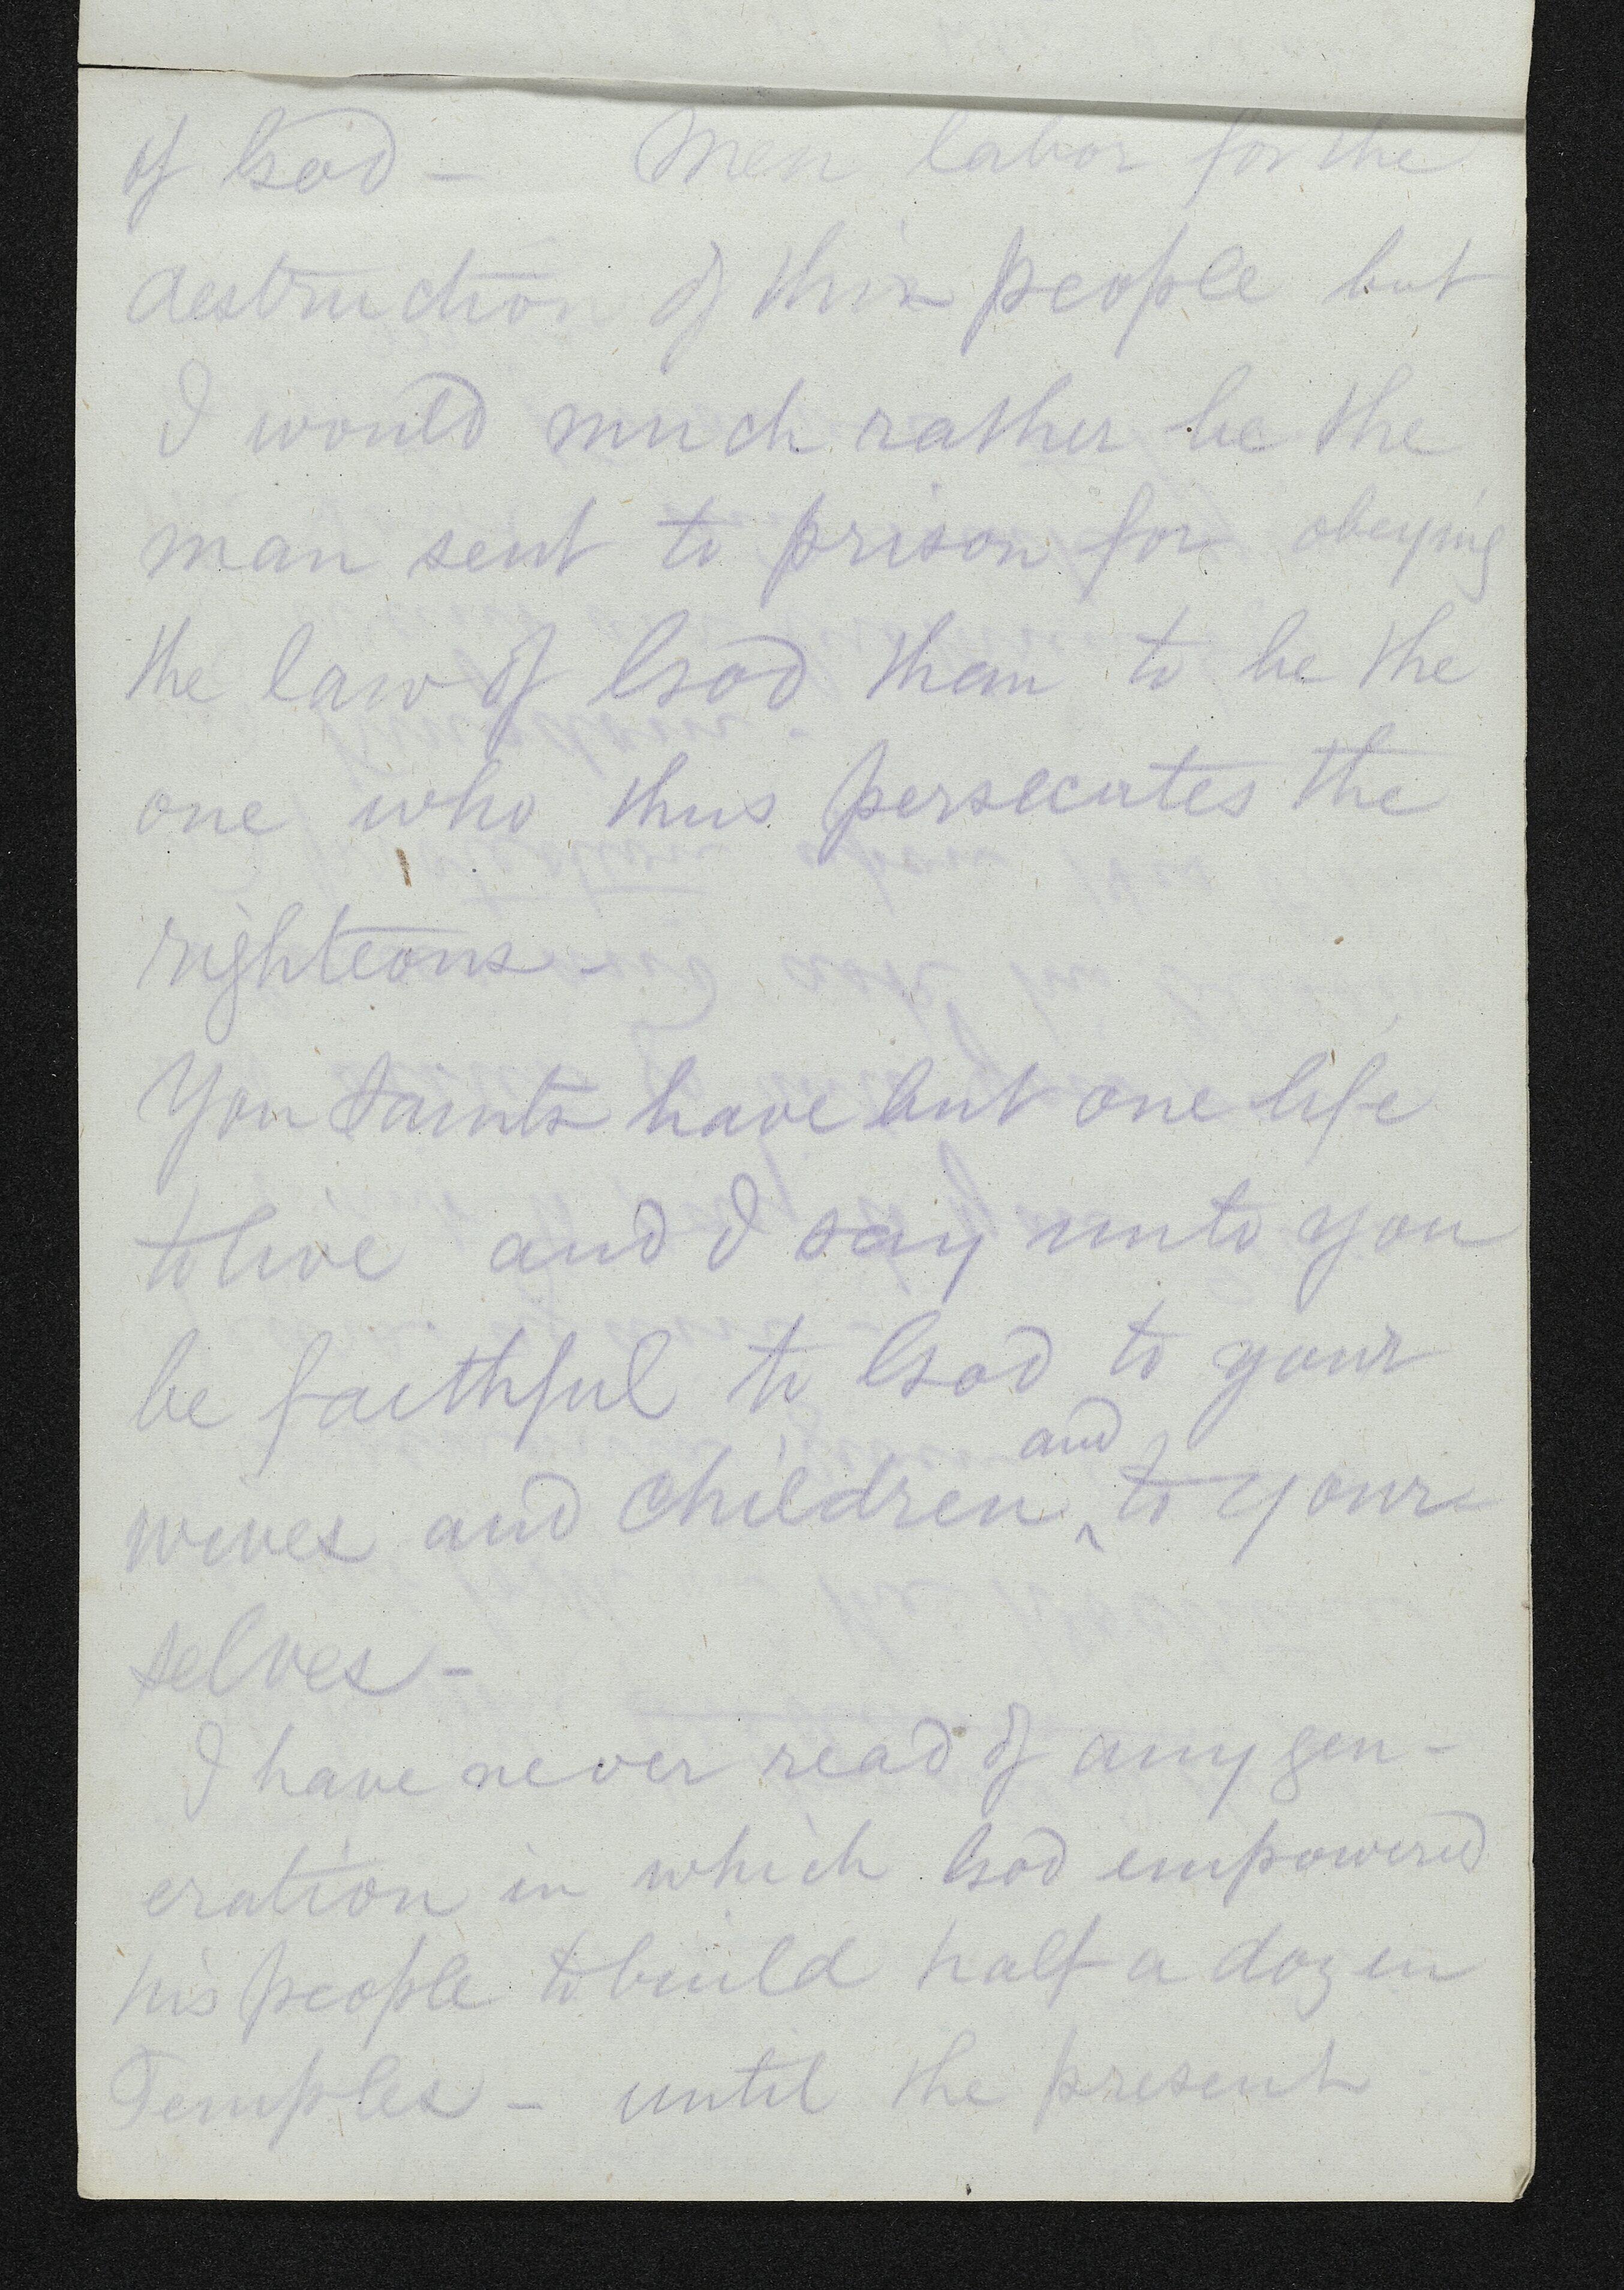 of God – Men labor for the
destruction of this people but
I would much rather be the
man sent to prison for obeying
the law of God than to be the
one who thus persecutes the
righteous –
You Saints have but one life
to live and I say unto you
be faithful to God to your
wives and children ^and to your
selves –
I have never read of any gen-
eration in which God empowered
his people to build half a dozen
Temples – until the present